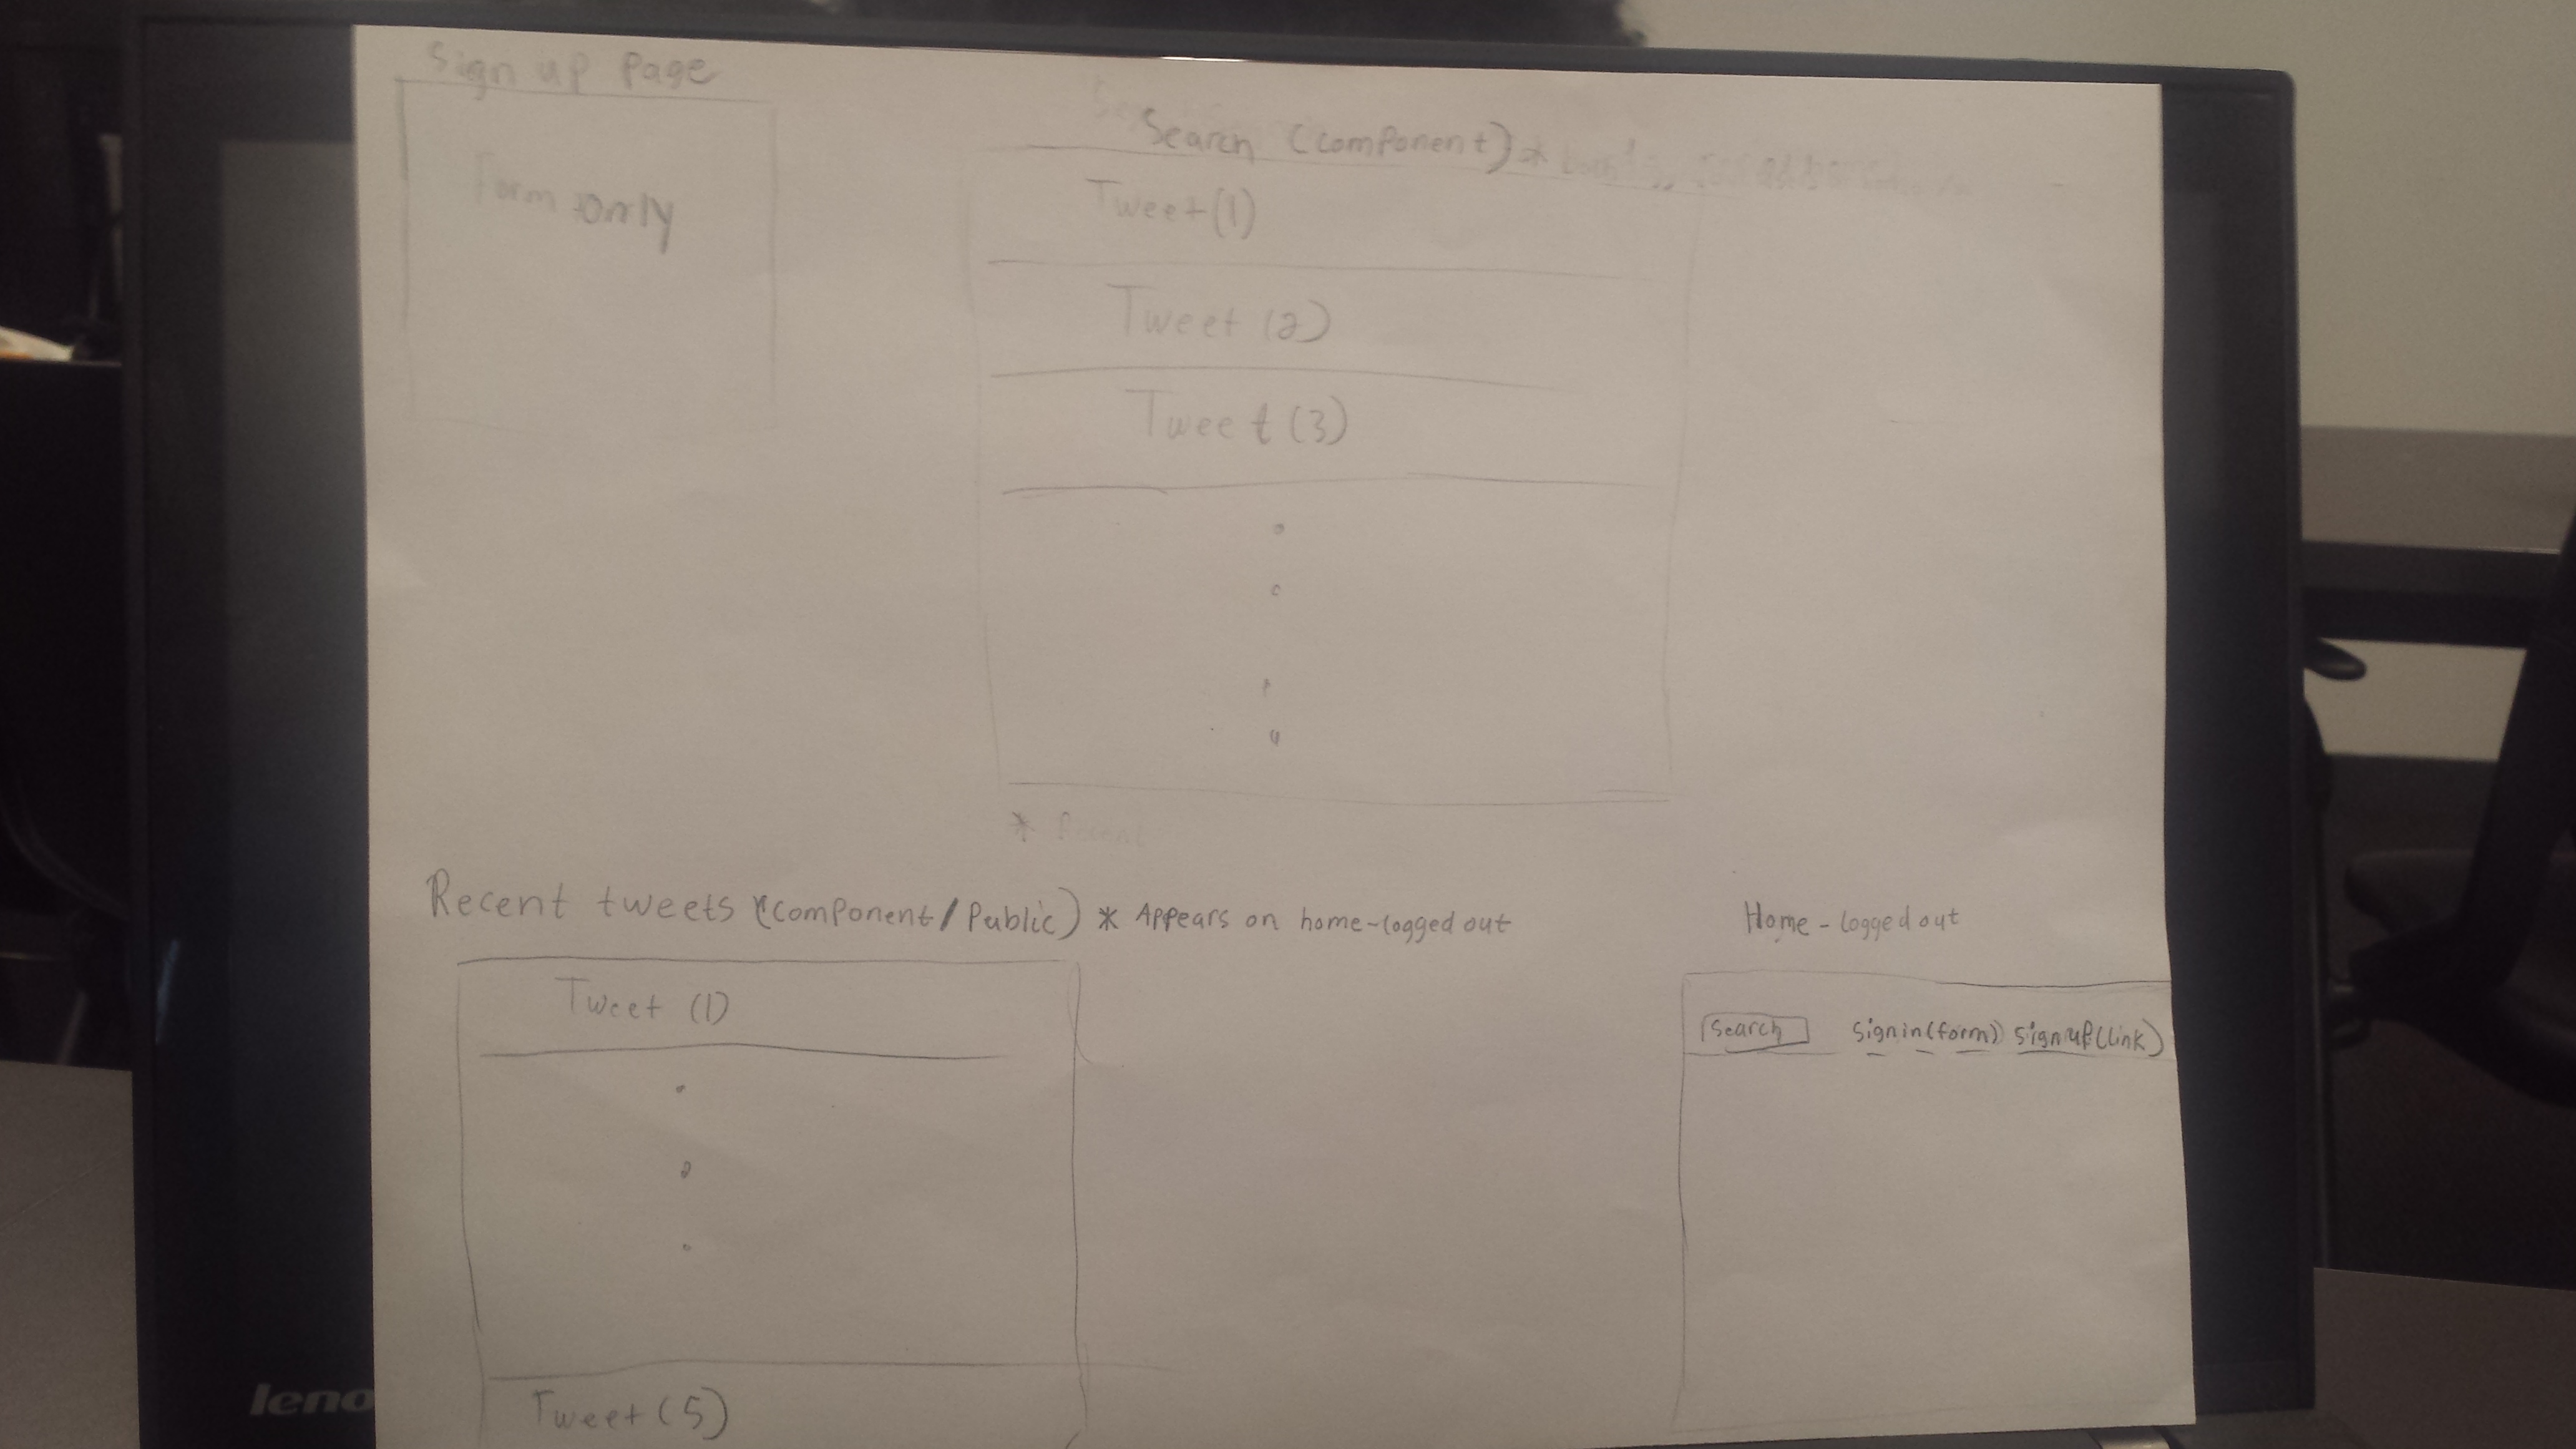 Sign up Page
Form only
Search (component) *
Tweet (1)
Tweet (2)
Tweet (3)
* Recent
Recent tweets (component/Public) * Appears on home-logged out
Tweet (1)
Tweet (5)
Home - logged out
Search Sign in (form) Sign up (link)
leno